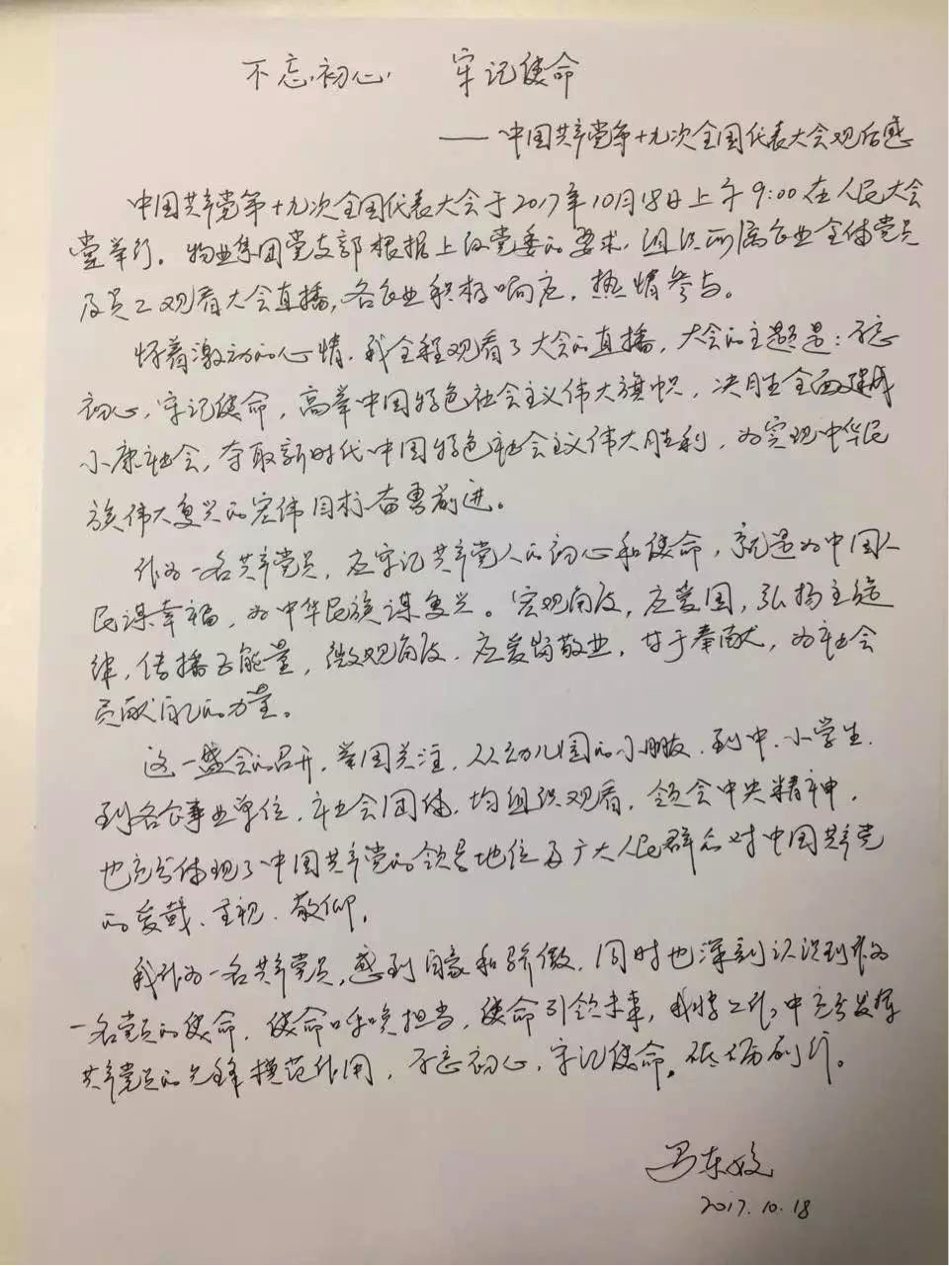 不忘初心 牢记使命
——中国共产党第十九次全国代表大会观后感
中国共产党第十九次全国代表大会于2017年10月18日上午9:00在人民大会
堂举行。物业集团党支部根据上级党委的要求,组织所属企业全体党员
及员工观看大会直播,各企业积极响应,热情参与。
怀着激动的心情,我全程观看了大会的直播,大会的主题是:不忘
初心,牢记使命,高举中国特色社会主义伟大旗帜,决胜全面建成
小康社会,夺取新时代中国特色社会主义伟大胜利,为实现中华民
族伟大复兴的宏伟目标奋勇前进。
作为一名共产党员,应牢记共产党人的初心和使命,就是为中国人
民谋幸福,为中华民族谋复兴。宏观角度,应爱国,弘扬主旋
律,传播正能量,微观角度,应爱岗敬业,甘于奉献,为社会
贡献自己的力量。
这一盛会的召开,举国关注,从幼儿园的小朋友,到中、小学生,
到各企事业单位,社会团体,均组织观看,领会中央精神,
也充分体现了中国共产党的领导地位及广大人民群众对中国共产党
的爱戴、重视、敬仰。
我作为一名共产党员,感到自豪和骄傲,同时也深刻认识到作为
一名党员的使命,使命呼唤担当,使命引领未来,我将工作中充分发挥
共产党员的先锋模范作用,不忘初心,牢记使命。砥砺前行。
冯东姣
2017.10.18